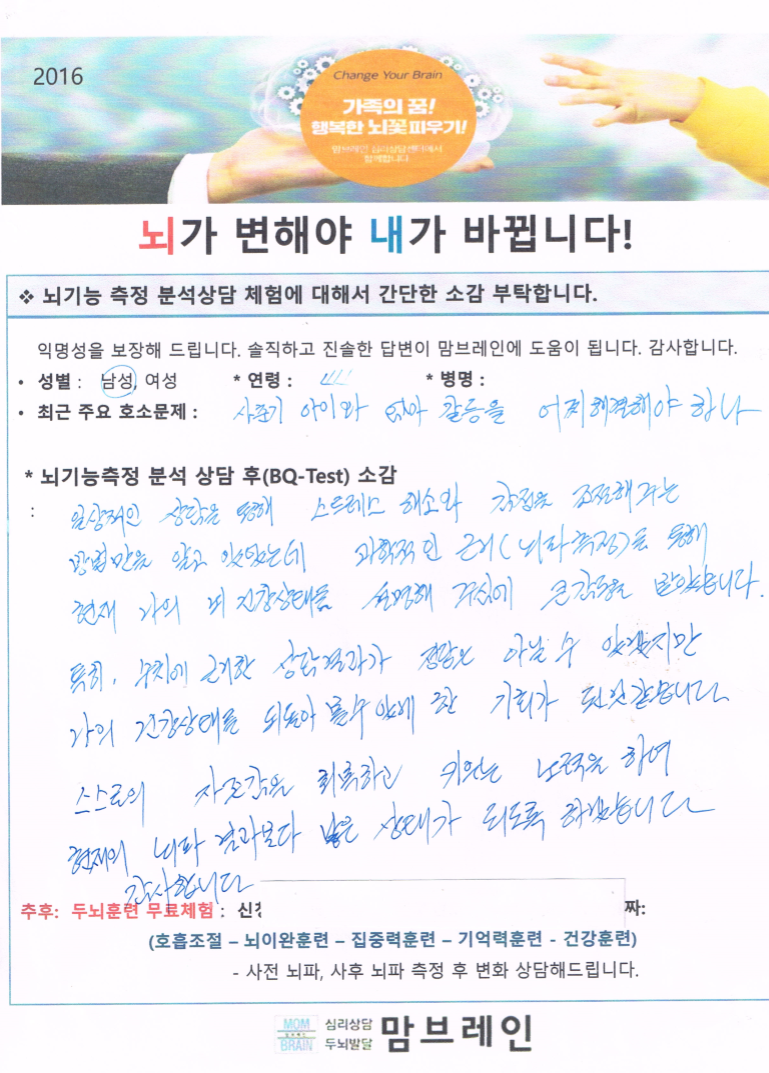 2016
Change Your Brain
가족의 꿈!
행복한 뇌꽃피우기!
맘브레인 심리상담센터에서
함께합니다
뇌가 변해야 내가 바뀝니다!
❖ 뇌기능 측정 분석상담 체험에 대해서 간단한 소감 부탁합니다.
익명성을 보장해 드립니다. 솔직하고 진솔한 답변이 맘브레인에 도움이 됩니다. 감사합니다.
• 성별 : 남성, 여성 * 연령 : * 병명 :
• 최근 주요 호소문제 : 사춘기 아이와 엄마 갈등을 어찌해결해야 하나
* 뇌기능측정 분석 상담 후(BQ-Test) 소감
: 일상적인 상담을 통해 스트레스 해소와 감정을 조절해주는
방법만을 알고 있었는데 과학적인 근거(뇌파측정)를 통해
현재 나의 뇌 건강상태를 설명해 주심에 큰감동을 받았습니다.
특히, 수치에 근거한 상담결과가 정답은 아닐 수 있겠지만
나의 건강상태를 되돌아 볼수 있게 한 기회가 된것같습니다
스스로의 자존감을 회복하고 키우는 노력을 하여
현재의 뇌파 결과보다 많은 상태가 되도록 하겠습니다
감사합니다
추후: 두뇌훈련 무료체험 : 신청 짜:
(호흡조절 – 뇌이완훈련 – 집중력훈련 – 기억력훈련 - 건강훈련)
- 사전 뇌파, 사후 뇌파 측정 후 변화 상담해드립니다.
MOM
BRAIN
심리상담
두뇌발달
맘브레인